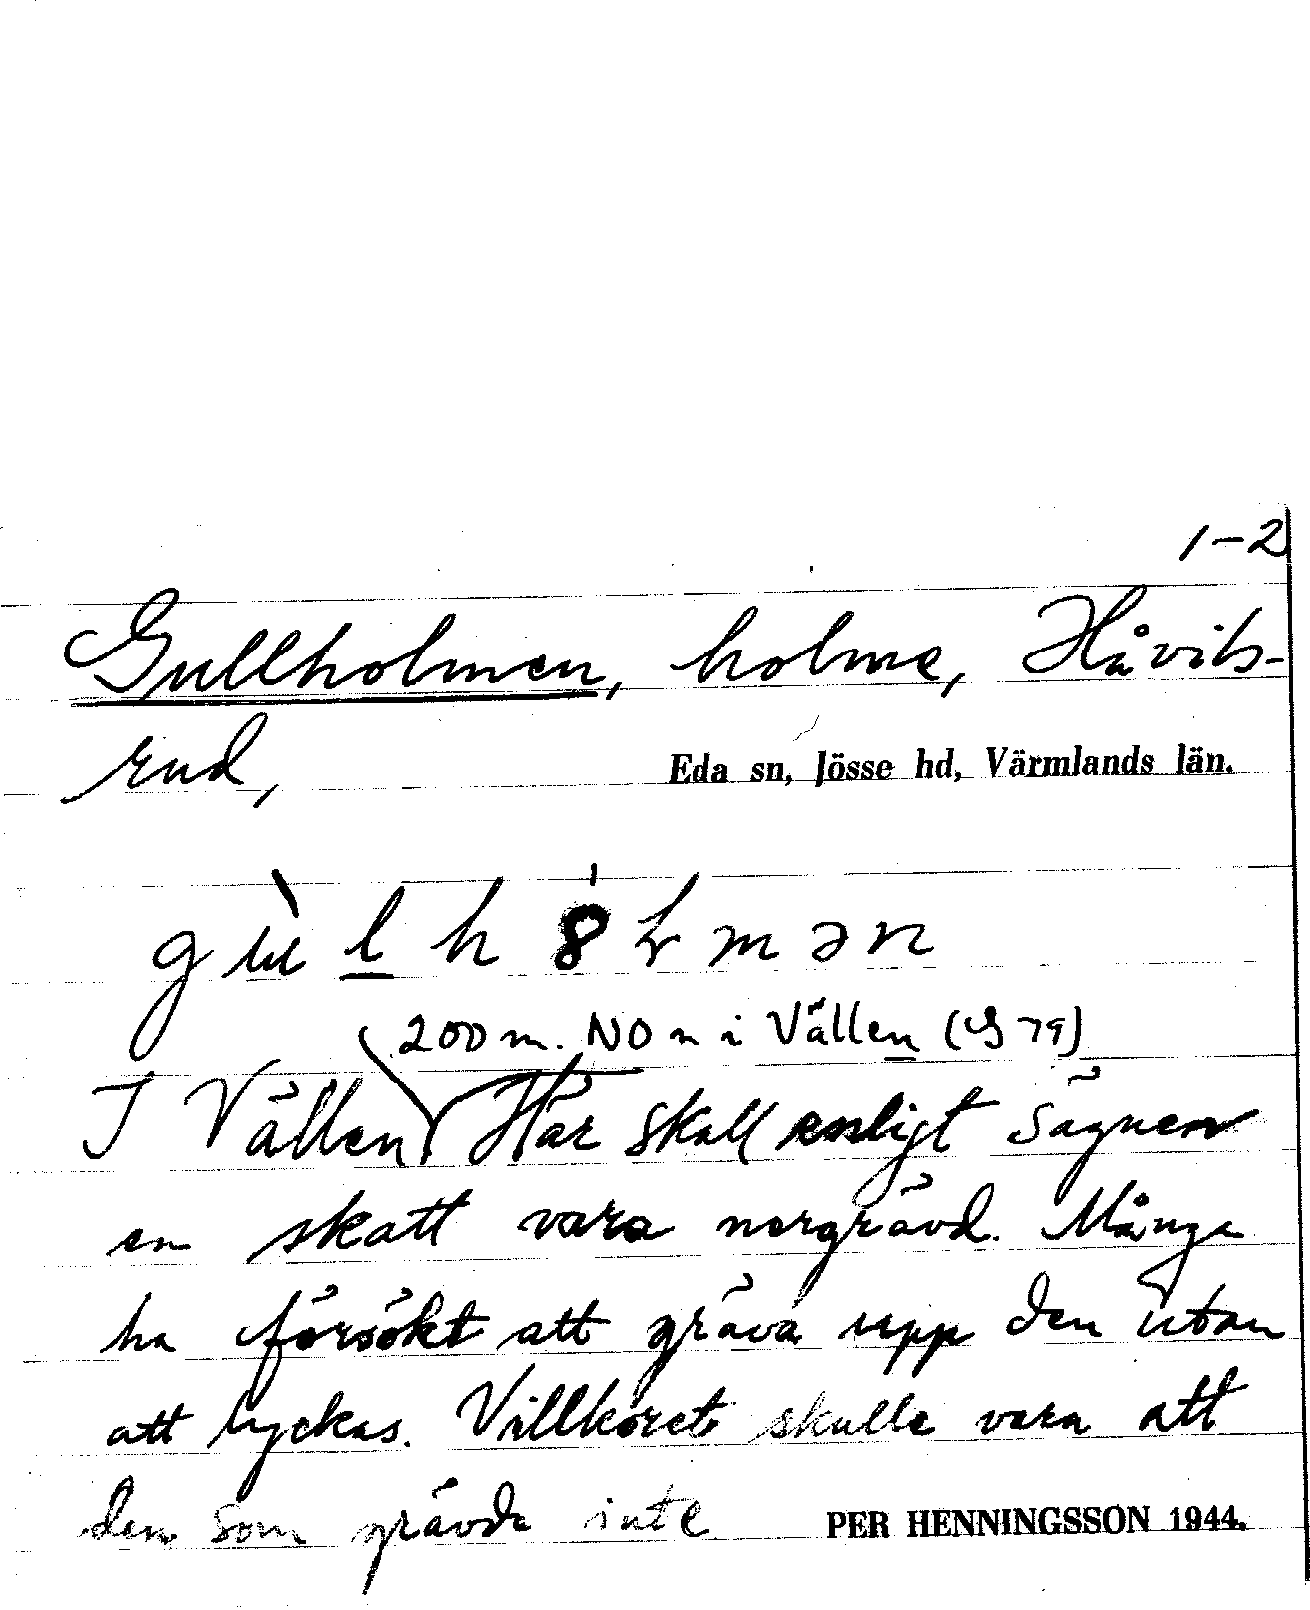 1-2
Gullholmen, holme, Håvils-
rud,
Eda sn, Jösse hd, Värmlands län.
200 m. NO n i Vällen
I Vällen Här skall enligt sägnen
en skatt vara nergrävd. Många
ha försökt att gräva upp den utan
att lyckas. Villkoret skulle vara att
den som grävde inte
PER HENNINGSSON 1944.